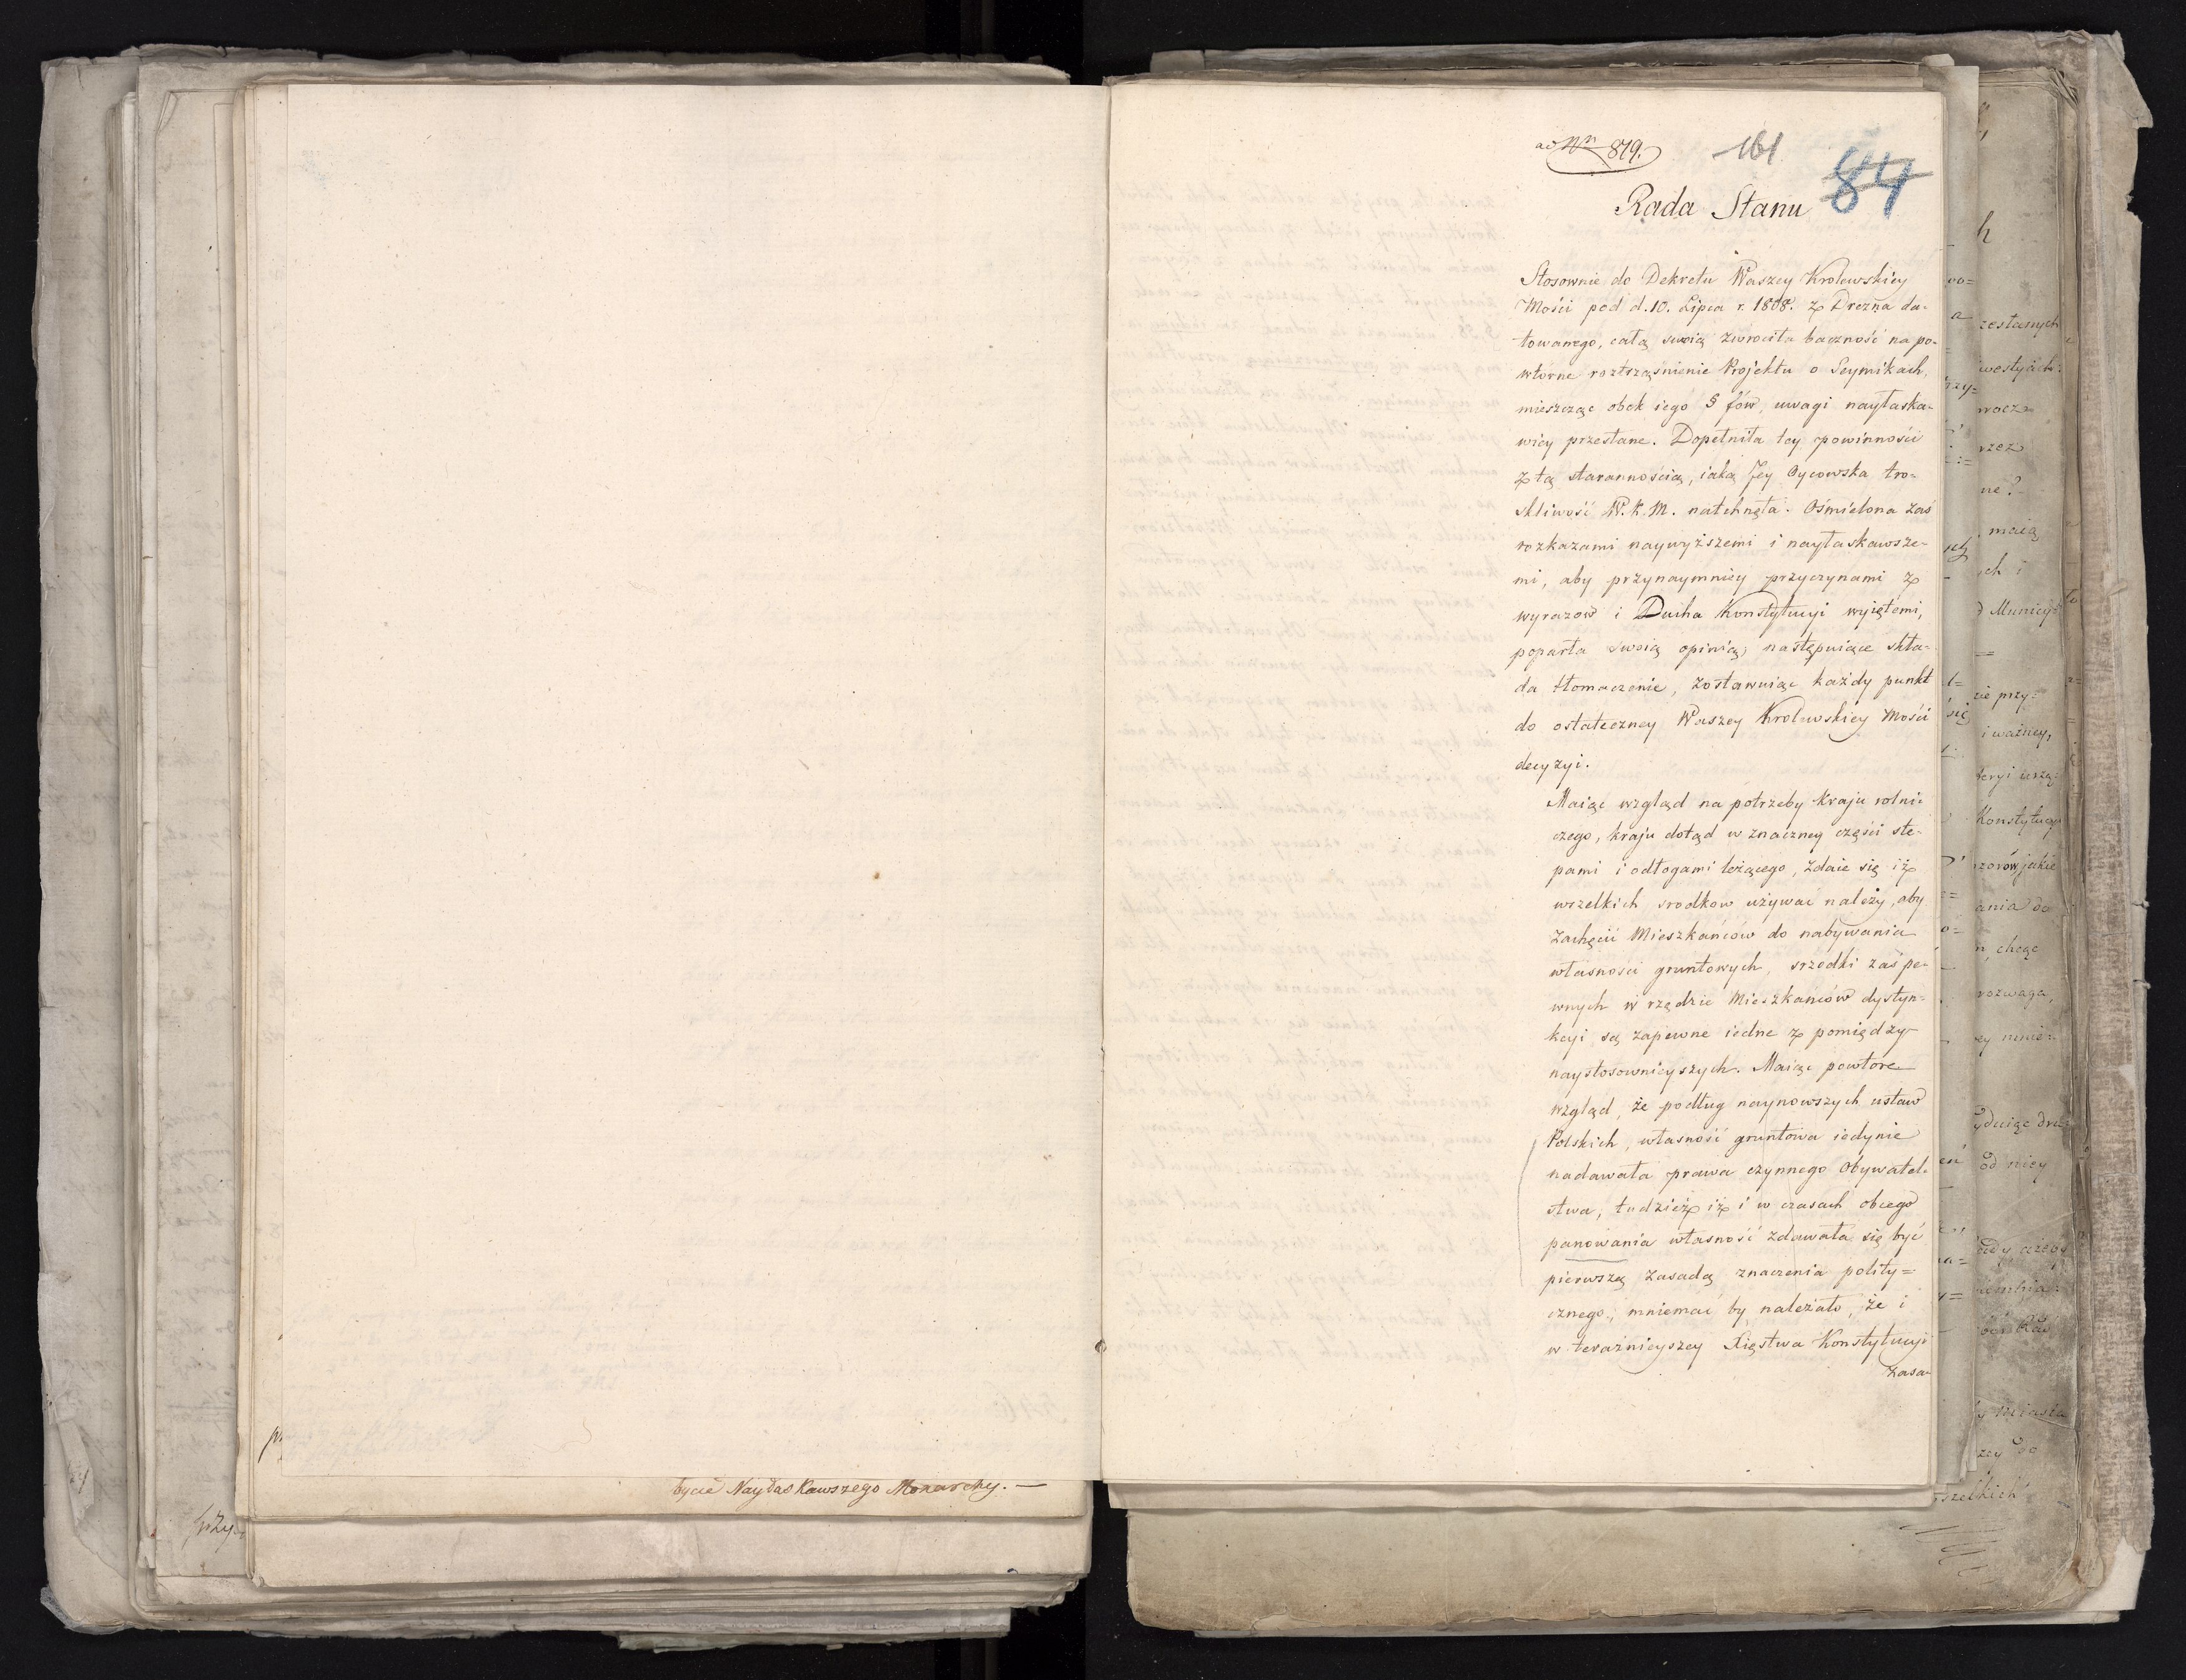 bycie Naydaskawszego Monarchy. —
ad Nrn 879.
161
84
Rada Stanu
Stosownie do Dekretu Waszey Krolewskiey
Mości pod d. 10. Lipca r. 1808. z Drezna da-
towanego, całą swoią zwrociła baczność na po-
wtórne roztrząśnienie Projektu o Seymikach,
mieszcząc obok iego § fów, uwagi nayłaska-
wiey przesłane. Dopełniła tey powinności
z tą starannością, iaką Jey Oycowska tro-
skliwość W. K. M. natchnęła. Ośmielona zaś
rozkazami naywyższemi i nayłaskawsze-
mi, aby przynaymniey przyczynami z
wyrazow i Ducha Konstytucyi wyiętemi,
poparła swoią opinią, następuiące skła-
da tłomaczenie, zostawuiąc każdy punkt
do ostateczney Waszey Krolewskiey Mości
decyzyi.
Maiąc wzgląd na potrzeby kraju rolni-
czego, kraju dotąd w znaczney części ste-
pami i odłogami leżącego, zdaie się iż
wszelkich srodkow używać należy, aby
zachęcić Mieszkańców do nabywania
własności gruntowych, srzodki zaś pe-
wnych w rzędzie Mieszkańców dystyn-
kcyi są zapewne iedne z pomiędzy
naystosownieyszych. Maiąc powtore
wzgląd, że podług naynowszych ustaw
Polskich, własność gruntowa iedynie
nadawała prawa czynnego Obywatel-
stwa, tudzież iż i w czasach obcego
panowania własność zdawała się być
pierwszą zasadą znaczenia polity=
cznego, mniemać by należało, że i
w teraźnieyszey Xięstwa Konstytucyi
zasa-